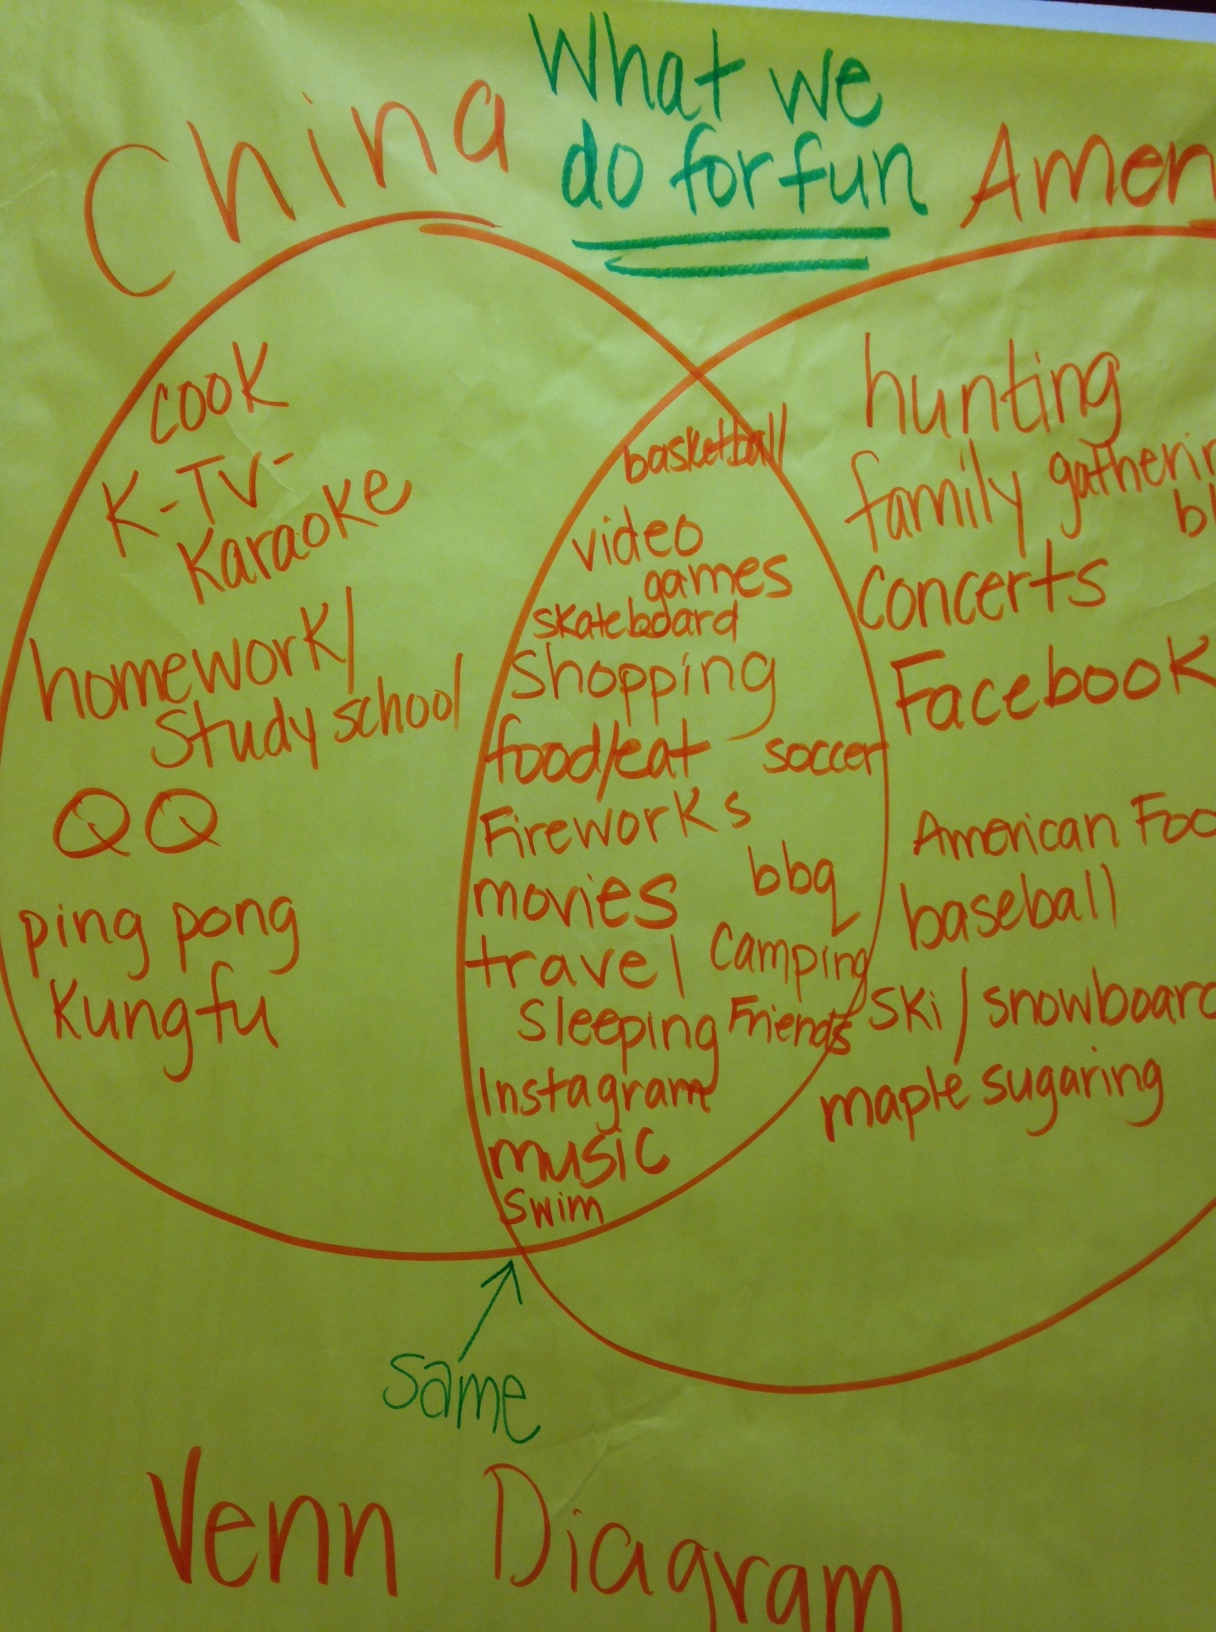 What we
do for fun
China
Amer
cook
K-TV-
Karaoke
homework/
study school
QQ
ping pong
Kungfu
basketball
video
games
skateboard
shopping
food/eat
soccer
Fireworks
bbq
movies
travel
camping
sleeping
Friends
Instagram
music
swim
hunting
family gatherin
bl
concerts
Facebook
American Foo
baseball
ski/snowboard
maple sugaring
same
Venn Diagram